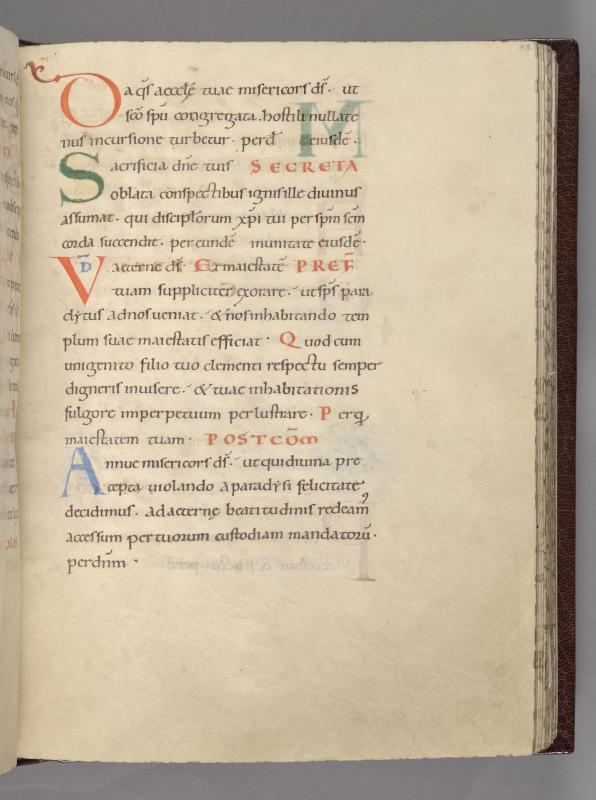 Da q̄s aecclę̄ tuae misericors d̄s· ut
s̄co sp̄u congregata. hostili nullate
nus incursione turbetur· perd̄ eiusdē·
Sacrificia dn̄e tuis SECRETA
oblata conspectibus ignis ille diuinus
assumat· qui discipl̄orum xp̄i tui per sp̄m s̄cm
corda succendit· per eundē inunitate eiusdē·
VD̄ aeterne d̄s· Et maiestatē PREF̄
tuam suppliciter exorare· ut sp̄s para
clytus adnos ueniat· & nos inhabitando tem
plum suae maiestatis efficiat· Quod cum
unigenito filio tuo clementi respectu semper
digneris inuisere· & tuae inhabitationis
fulgore imperpetuum perlustrare· Per q̨
maiestatem tuam· POSTCŌM
Annue misericors d̄s· ut qui diuina pre
cepta uiolando aparadysi felicitate
decidimus· ad aeternę beatitudinis redeam9
accessum per tuorum custodiam mandatorū·
per dn̄m·